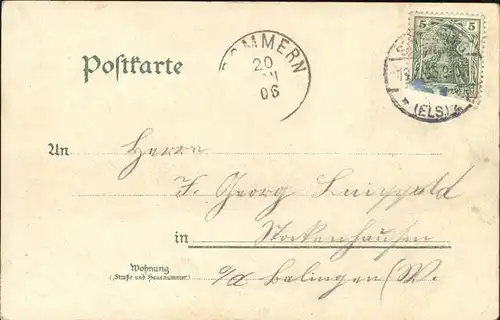 Postkarte
DOMMERN
20
06
5 5
(ELS.)
An Herrn
J. Georg Luippold
in Stockenhausen
Wohnung
(Straße und Hausnummer)
o/a Balingen (W.